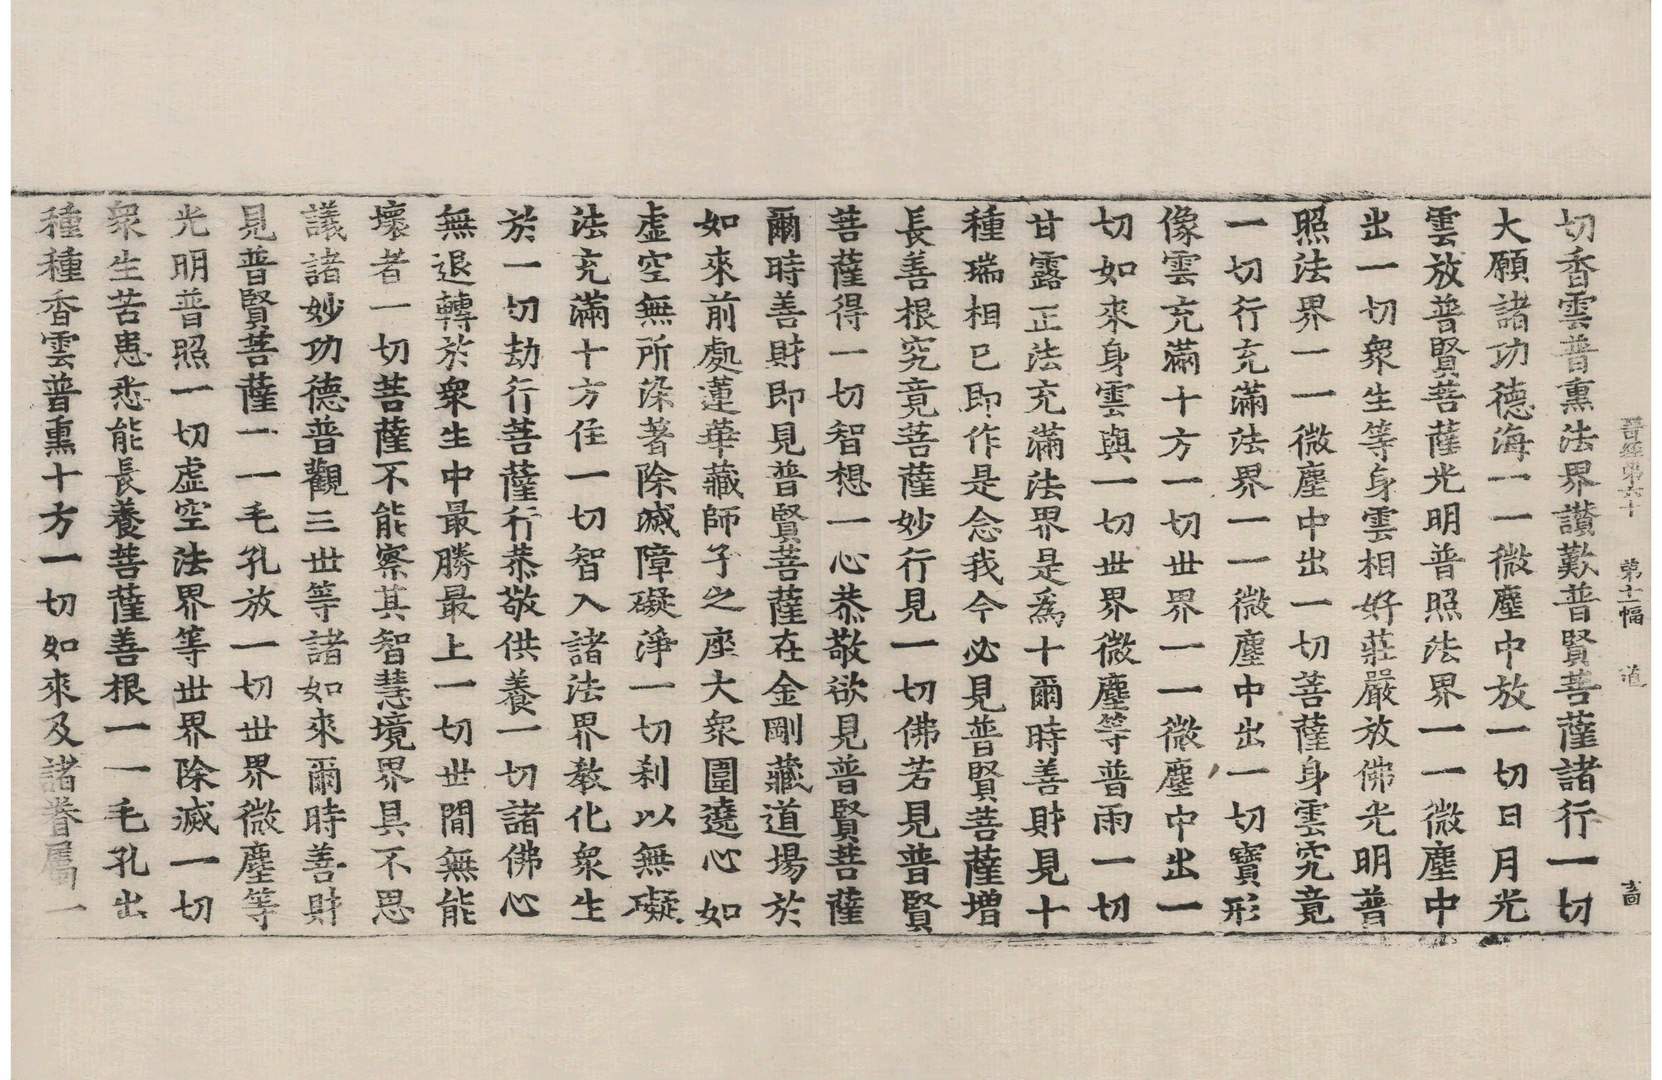 晉經第六十　第十二幅　道　畵
切香雲普熏法界讃歎普賢菩薩諸行一切
大願諸功德海一一微塵中放一切日月光
雲放普賢菩薩光明普照法界一一微塵中
出一切衆生等身雲相好莊嚴放佛光明普
照法界一一微塵中出一切菩薩身雲究竟
一切行充滿法界一一微塵中出一切寶形
像雲充滿十方一切世界一一微塵中出一
切如來身雲與一切世界微塵等普雨一切
甘露正法充滿法界是爲十爾時善財見十
種瑞相已即作是念我今必見普賢菩薩增
長善根究竟菩薩妙行見一切佛若見普賢
菩薩得一切智想一心恭敬欲見普賢菩薩
爾時善財即見普賢菩薩在金剛藏道場於
如來前處蓮華藏師子之座大衆圍遶心如
虛空無所染著除滅障礙淨一切刹以無礙
法充滿十方住一切智入諸法界教化衆生
於一切劫行菩薩行恭敬供養一切諸佛心
無退轉於衆生中最勝最上一切世間無能
壞者一切菩薩不能察其智慧境界具不思
議諸妙功德普觀三世等諸如來爾時善財
見普賢菩薩一一毛孔放一切世界微塵等
光明普照一切虛空法界等世界除滅一切
衆生苦患悉能長養菩薩善根一一毛孔出
種種香雲普熏十方一切如來及諸眷屬一